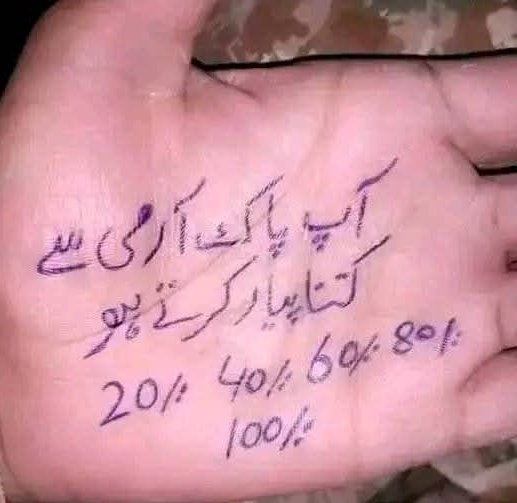 آپ پاک آرمی سے
کتنا پیار کرتے ہو
20% 40% 60% 80%
100%